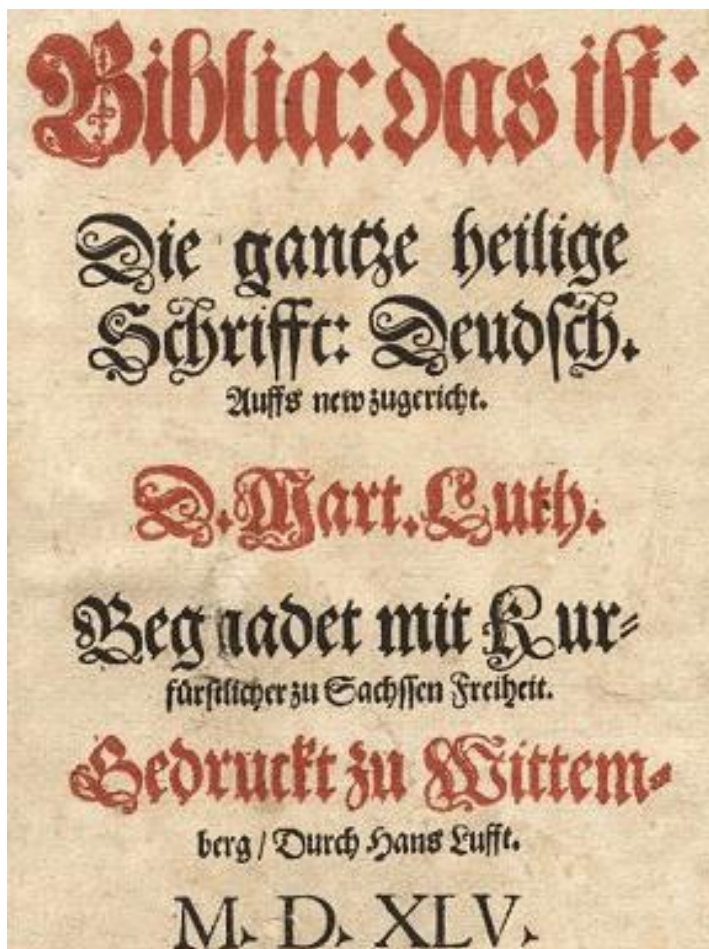 Biblia: das iſt:
Die gantze heilige
Schrifft: Deudſch.
Auffs new zugericht.
D. Mart. Luth.
Begnadet mit Kur-
fürſtlicher zu Sachſſen Freiheit.
Gedruckt zu Wittem-
berg / Durch Hans Lufft.
M. D. XLV.